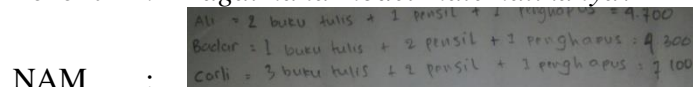 Ali = 2 buku tulis + 1 pensil + 1 penghapus = 4.700
Badar = 1 buku tulis + 2 pensil + 1 penghapus = 4 300
Carli = 3 buku tulis + 2 pensil + 1 penghapus = 7 100
NAM :